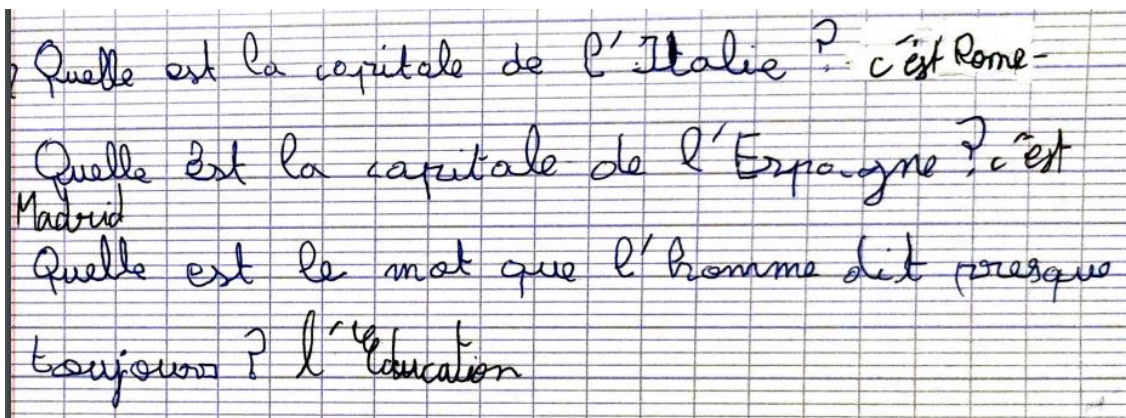 Quelle est la capitale de l'Italie ? c'est Rome-
Quelle est la capitale de l'Espagne ? c'est
Madrid
Quelle est le mot que l'homme dit presque
toujours ? l'Education